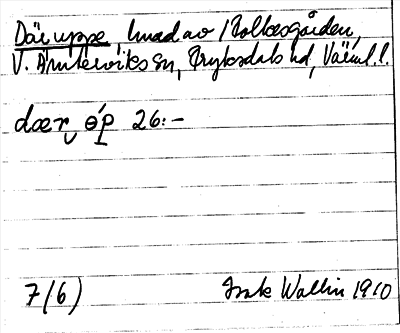 Där uppe lmad av Rolkesgården,
V. Ämterviks sn, Fryksdals hd, Värml. l.
dær, øp 26:-
7(6) Isak Wallin 1910